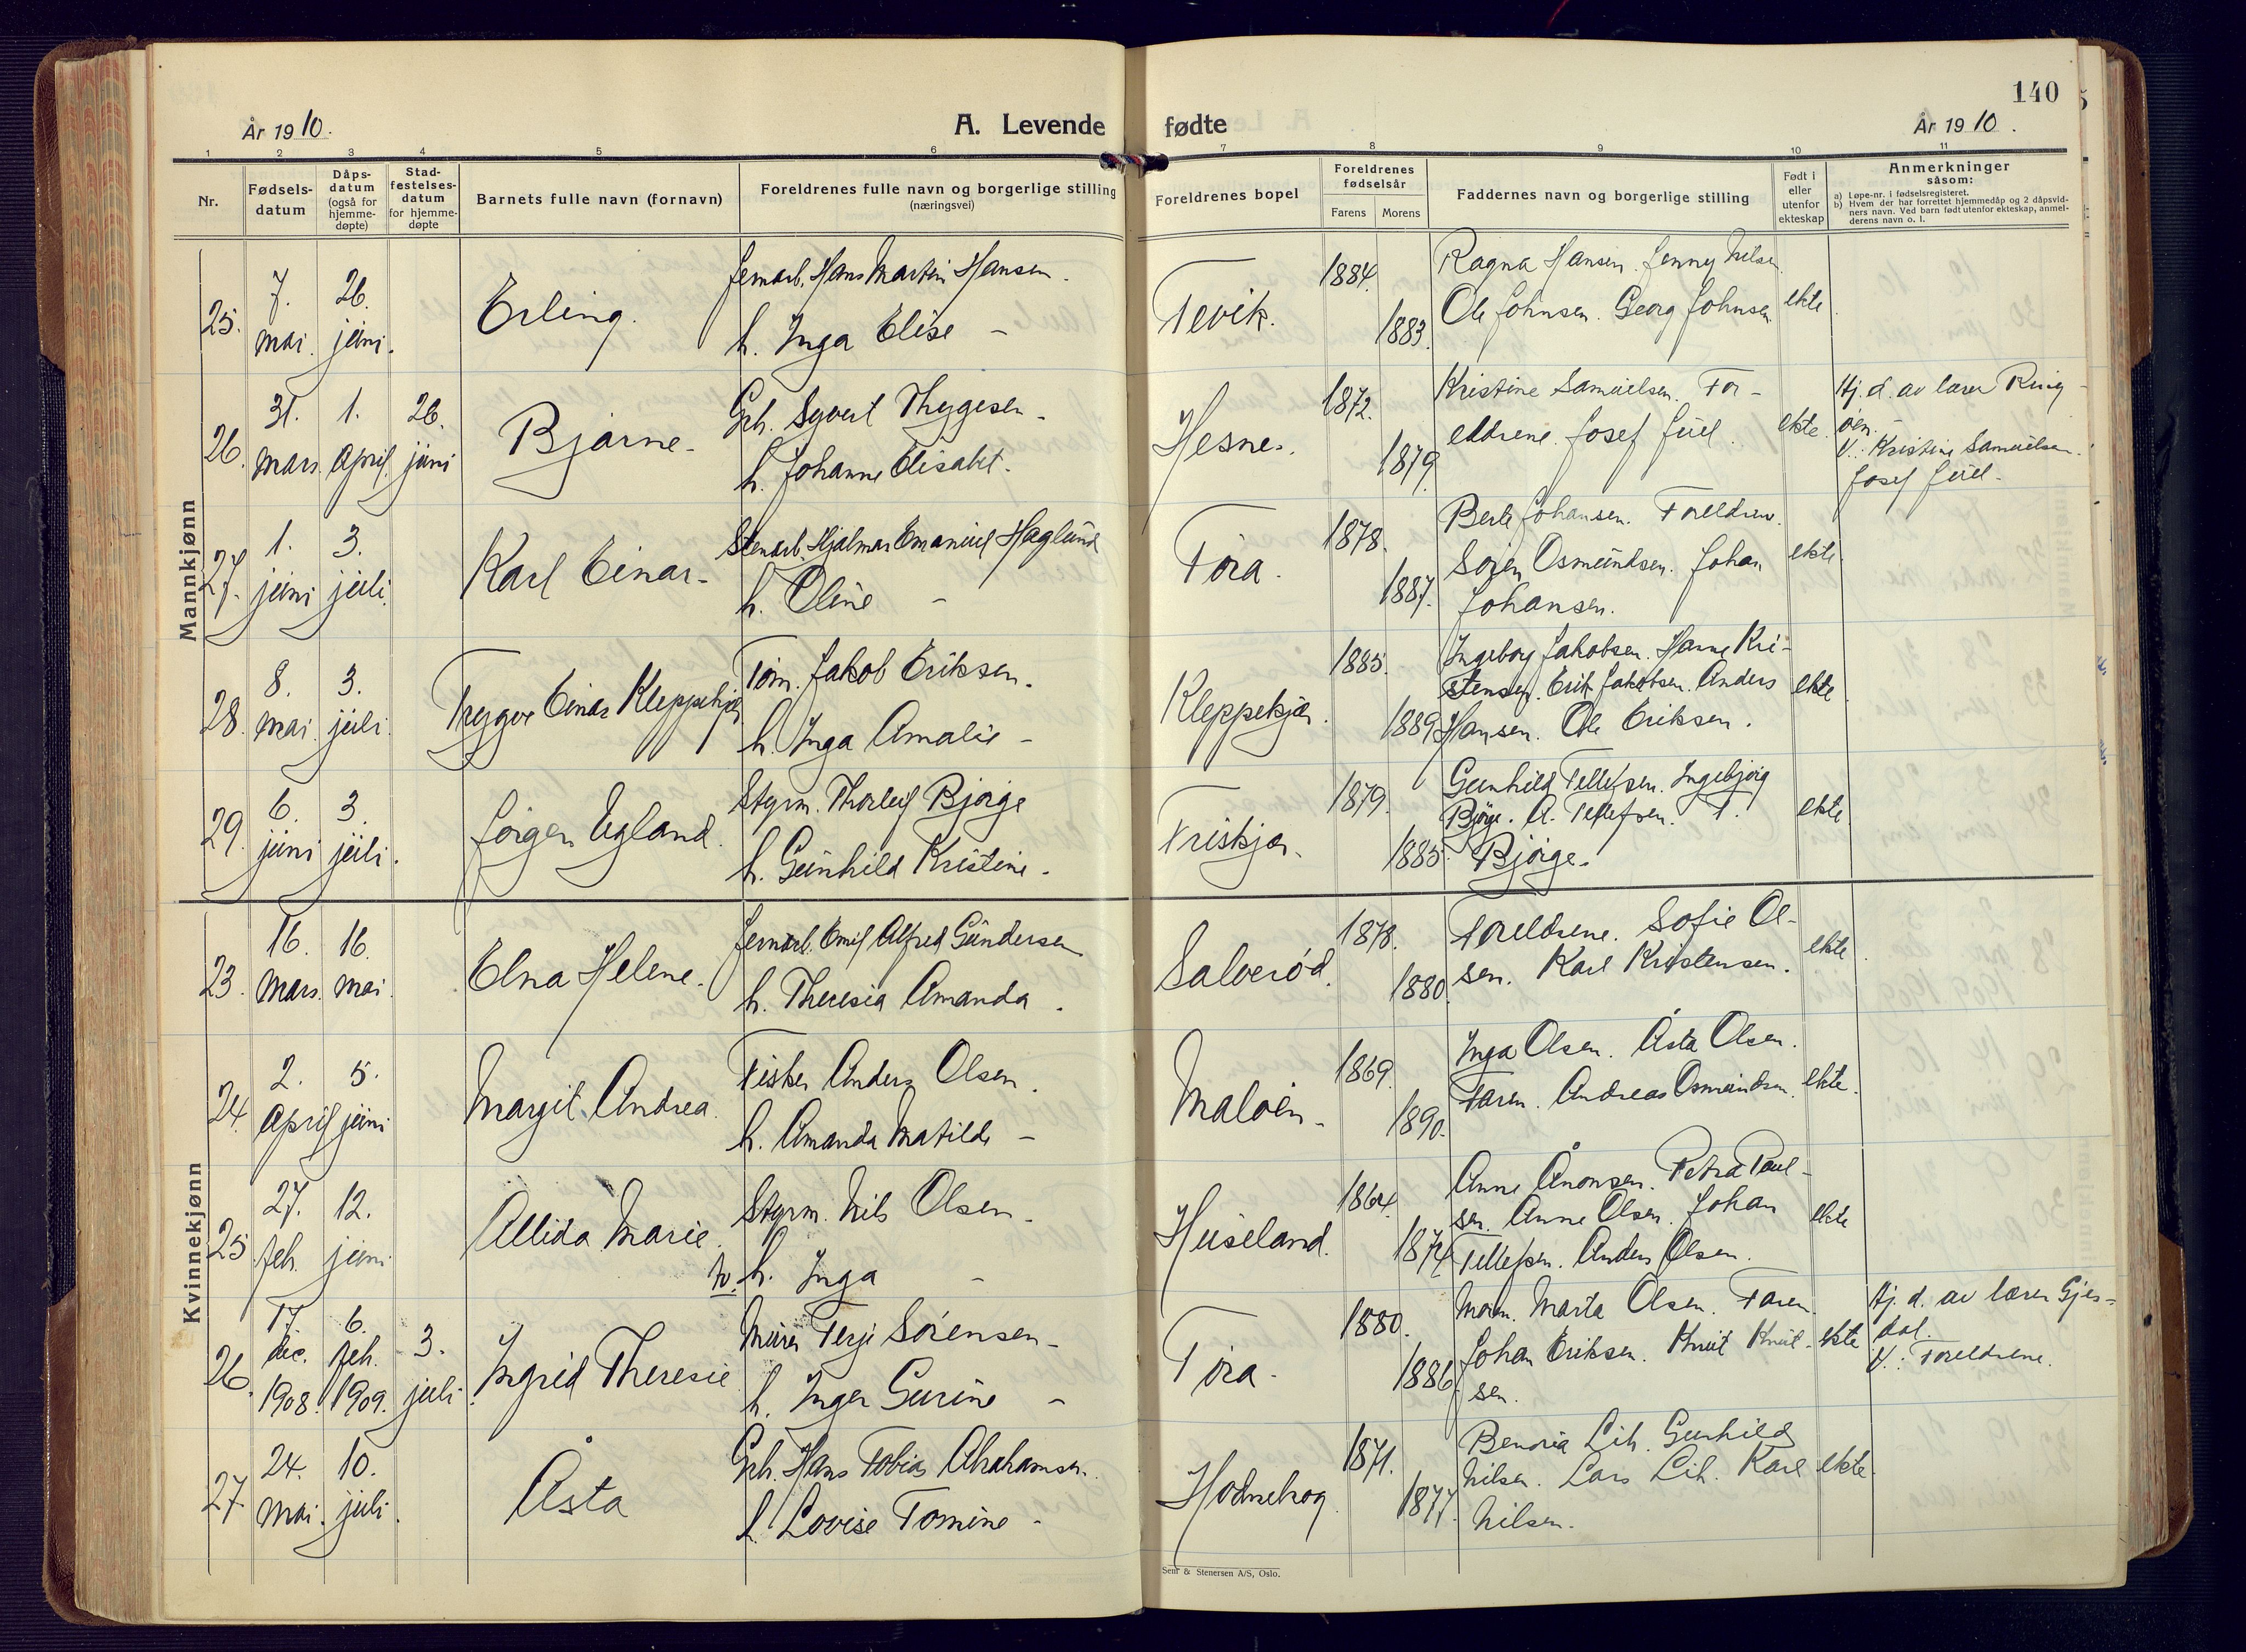 140
År 1910.
A. Levende fødte
År 1910.
1 2 3 4 5 6 7 8 9 10 11
Nr.
Fødsels-
datum
Dåps-
datum
(også for
hjemme-
døpte)
Stad-
festelses-
datum
for hjemme-
døpte
Barnets fulle navn (fornavn)
Foreldrenes fulle navn og borgerlige stilling
(næringsvei)
Foreldrenes bopel
Foreldrenes
fødselsår
Farens Morens
Faddernes navn og borgerlige stilling
Født i
eller
utenfor
ekteskap
Anmerkninger
såsom:
a) Løpe-nr. i fødselsregisteret.
b) Hvem der har forrettet hjemmedåp og 2 dåpsvid-
ners navn. Ved barn født utenfor ekteskap, anmel-
derens navn o. l.
Mannkjønn
25.
7.
mai.
26.
juni.
Erling.
Jernarb. Hans Martin Hansen.
h. Inga Elise -
Tevik.
1884.
1883.
Ragna Hansen. Jenny Nilsen.
Ole Johnsen. Georg Johnsen.
ekte
26.
31.
mars.
1.
April.
26.
juni
Bjarne.
Grb. Syvert Thygesen -
h. Johanne Elisabet.
Hesnes.
1872.
1879.
Kristine Samuelsen. For-
eldrene. Josef Juel.
ekte.
Hj. d. av lærer Ring-
øen.
V.: Kristine Samuelsen.
Josef Juel.
27.
1.
juni
3.
juli.
Karl Einar.
Stenarb. Hjalmar Emanuel Haglund
h. Oline -
Tøra.
1878.
1887.
Berte Johansen. Foreldrene.
Søren Osmundsen. Johan
Johansen.
ekte.
28.
8.
mai.
3.
juli.
Trygve Einar Kleppekjær
Tøm. Jakob Eriksen.
h. Inga Amalie -
Kleppekjær.
1885.
1889
Ingeborg Jakobsen. Hanne Kri-
stensen. Erik Jakobsen. Anders
Hansen. Ole Eriksen.
ekte
29.
6.
juni
3.
juli.
Jørgen Egland.
Styrm. Thorleif Bjørge
h. Gunhild Kristine.
Friskjær.
1879.
1885.
Gunhild Tellefsen. Ingebjørg
Bjørge. A. Tellefsen. T.
Bjørge.
ekte.
Kvinnekjønn
23.
16.
mars.
16.
mai.
Elna Helene.
Jernarb. Emil Alfred Gundersen
h. Theresia Amanda.
Salverød.
1878.
1880.
Foreldrene. Sofie Ol-
sen. Karl Kristensen.
ekte.
24.
2.
April
5.
juni
Margit Andrea.
Fisker Anders Olsen.
h. Amanda Matilde -
Maløen.
1869.
1890.
Inga Olsen. Åsta Olsen.
Faren. Andreas Osmundsen.
ekte.
25
27.
feb.
12.
juni.
Allida Marie.
Styrm. Nils Olsen.
h. Inga -
Huseland.
1864.
1874
Anne Ånonsen. Petra Paul-
sen. Anne Olsen. Johan
Tellefsen. Anders Olsen.
ekte
26.
17.
dec.
1908.
6.
feb.
1909.
3.
juli.
Ingrid Theresie
Murer Terje Sørensen -
h. Inger Gurine -
Tøra.
1880.
1886
Moren. Marta Olsen. Faren.
Johan Eriksen. Knut Knut-
sen.
ekte
Hj. d. av lærer Gjes-
dal.
V.: Foreldrene.
27.
24.
mai.
10.
juli.
Åsta
Grb. Hans Tobias Abrahamsen.
h. Lovise Tomine -
Hodnebrog.
1871.
1877.
Gunhild
Nilsen. Lars Lib. Karl
Nilsen.
ekte.
Sem & Stenersen A/S, Oslo.